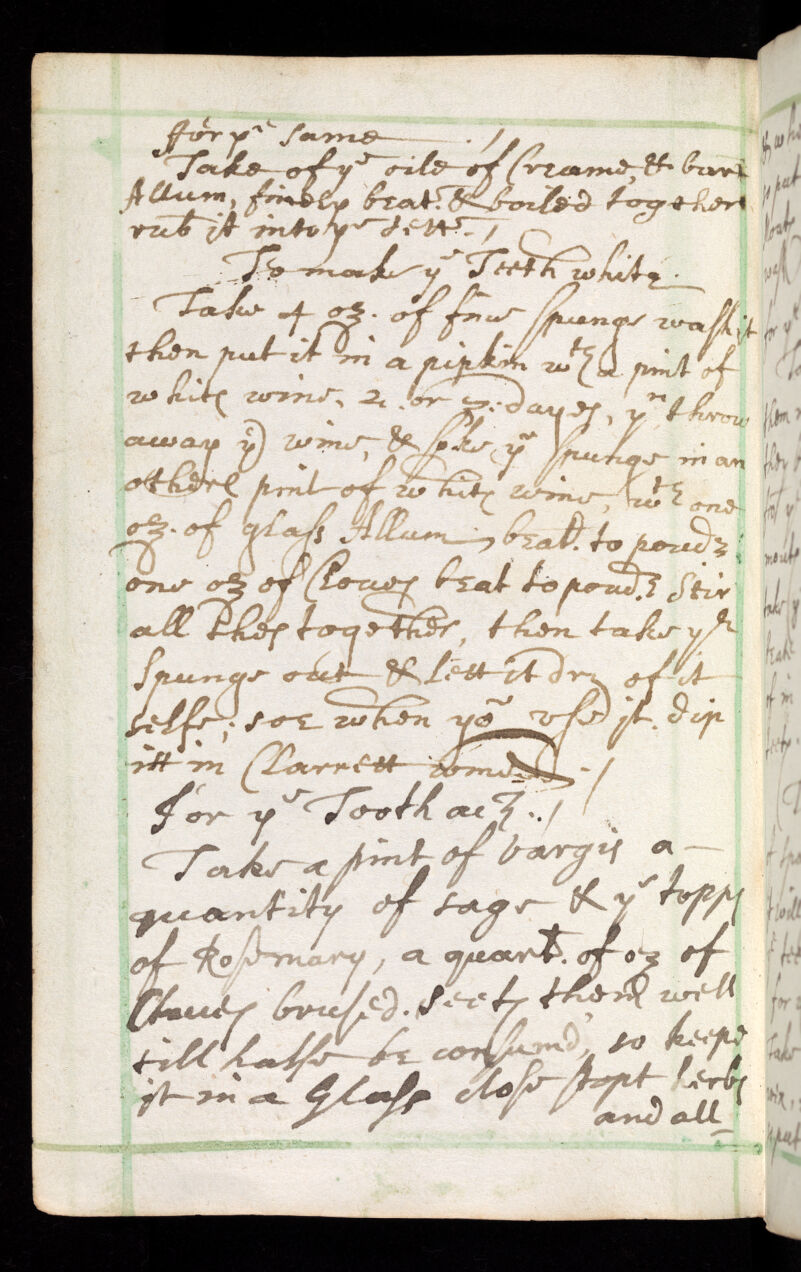 For yᵉ same
Take of yᵉ oile of Creame, & burt
Allum, finely beat. & boiled together
rub it into yᵉ
To make yᵉ Teeth white.
Take 4 oz. of fine spunge wash it
then put it in a pipkin wᵗʰ a pint of
white wine, 2. or 3. dayes, yⁿ throw
away yᵉ wine, & soke yᵉ spunge in an
othere pint of white wine, wᵗʰ one
oz. of glass Allum, beatᵈ. to poudʳ
one oz of Cloues beat to poudʳ Stir
all thes together, then take yᵉ
Spunge out & lett it dry of it
selfe; soe when yoᵘ use it. dip
itt in Clarrett wine
For yᵉ Tooth ach.
Take a pint of vargis a
quantity of sage & yᵉ topps
of Rosemary, a quartʳ. of oz of
Cloues brused. seeth them well
till halfe be consumd, so keepe
it in a Glass close stopt herbs
and all